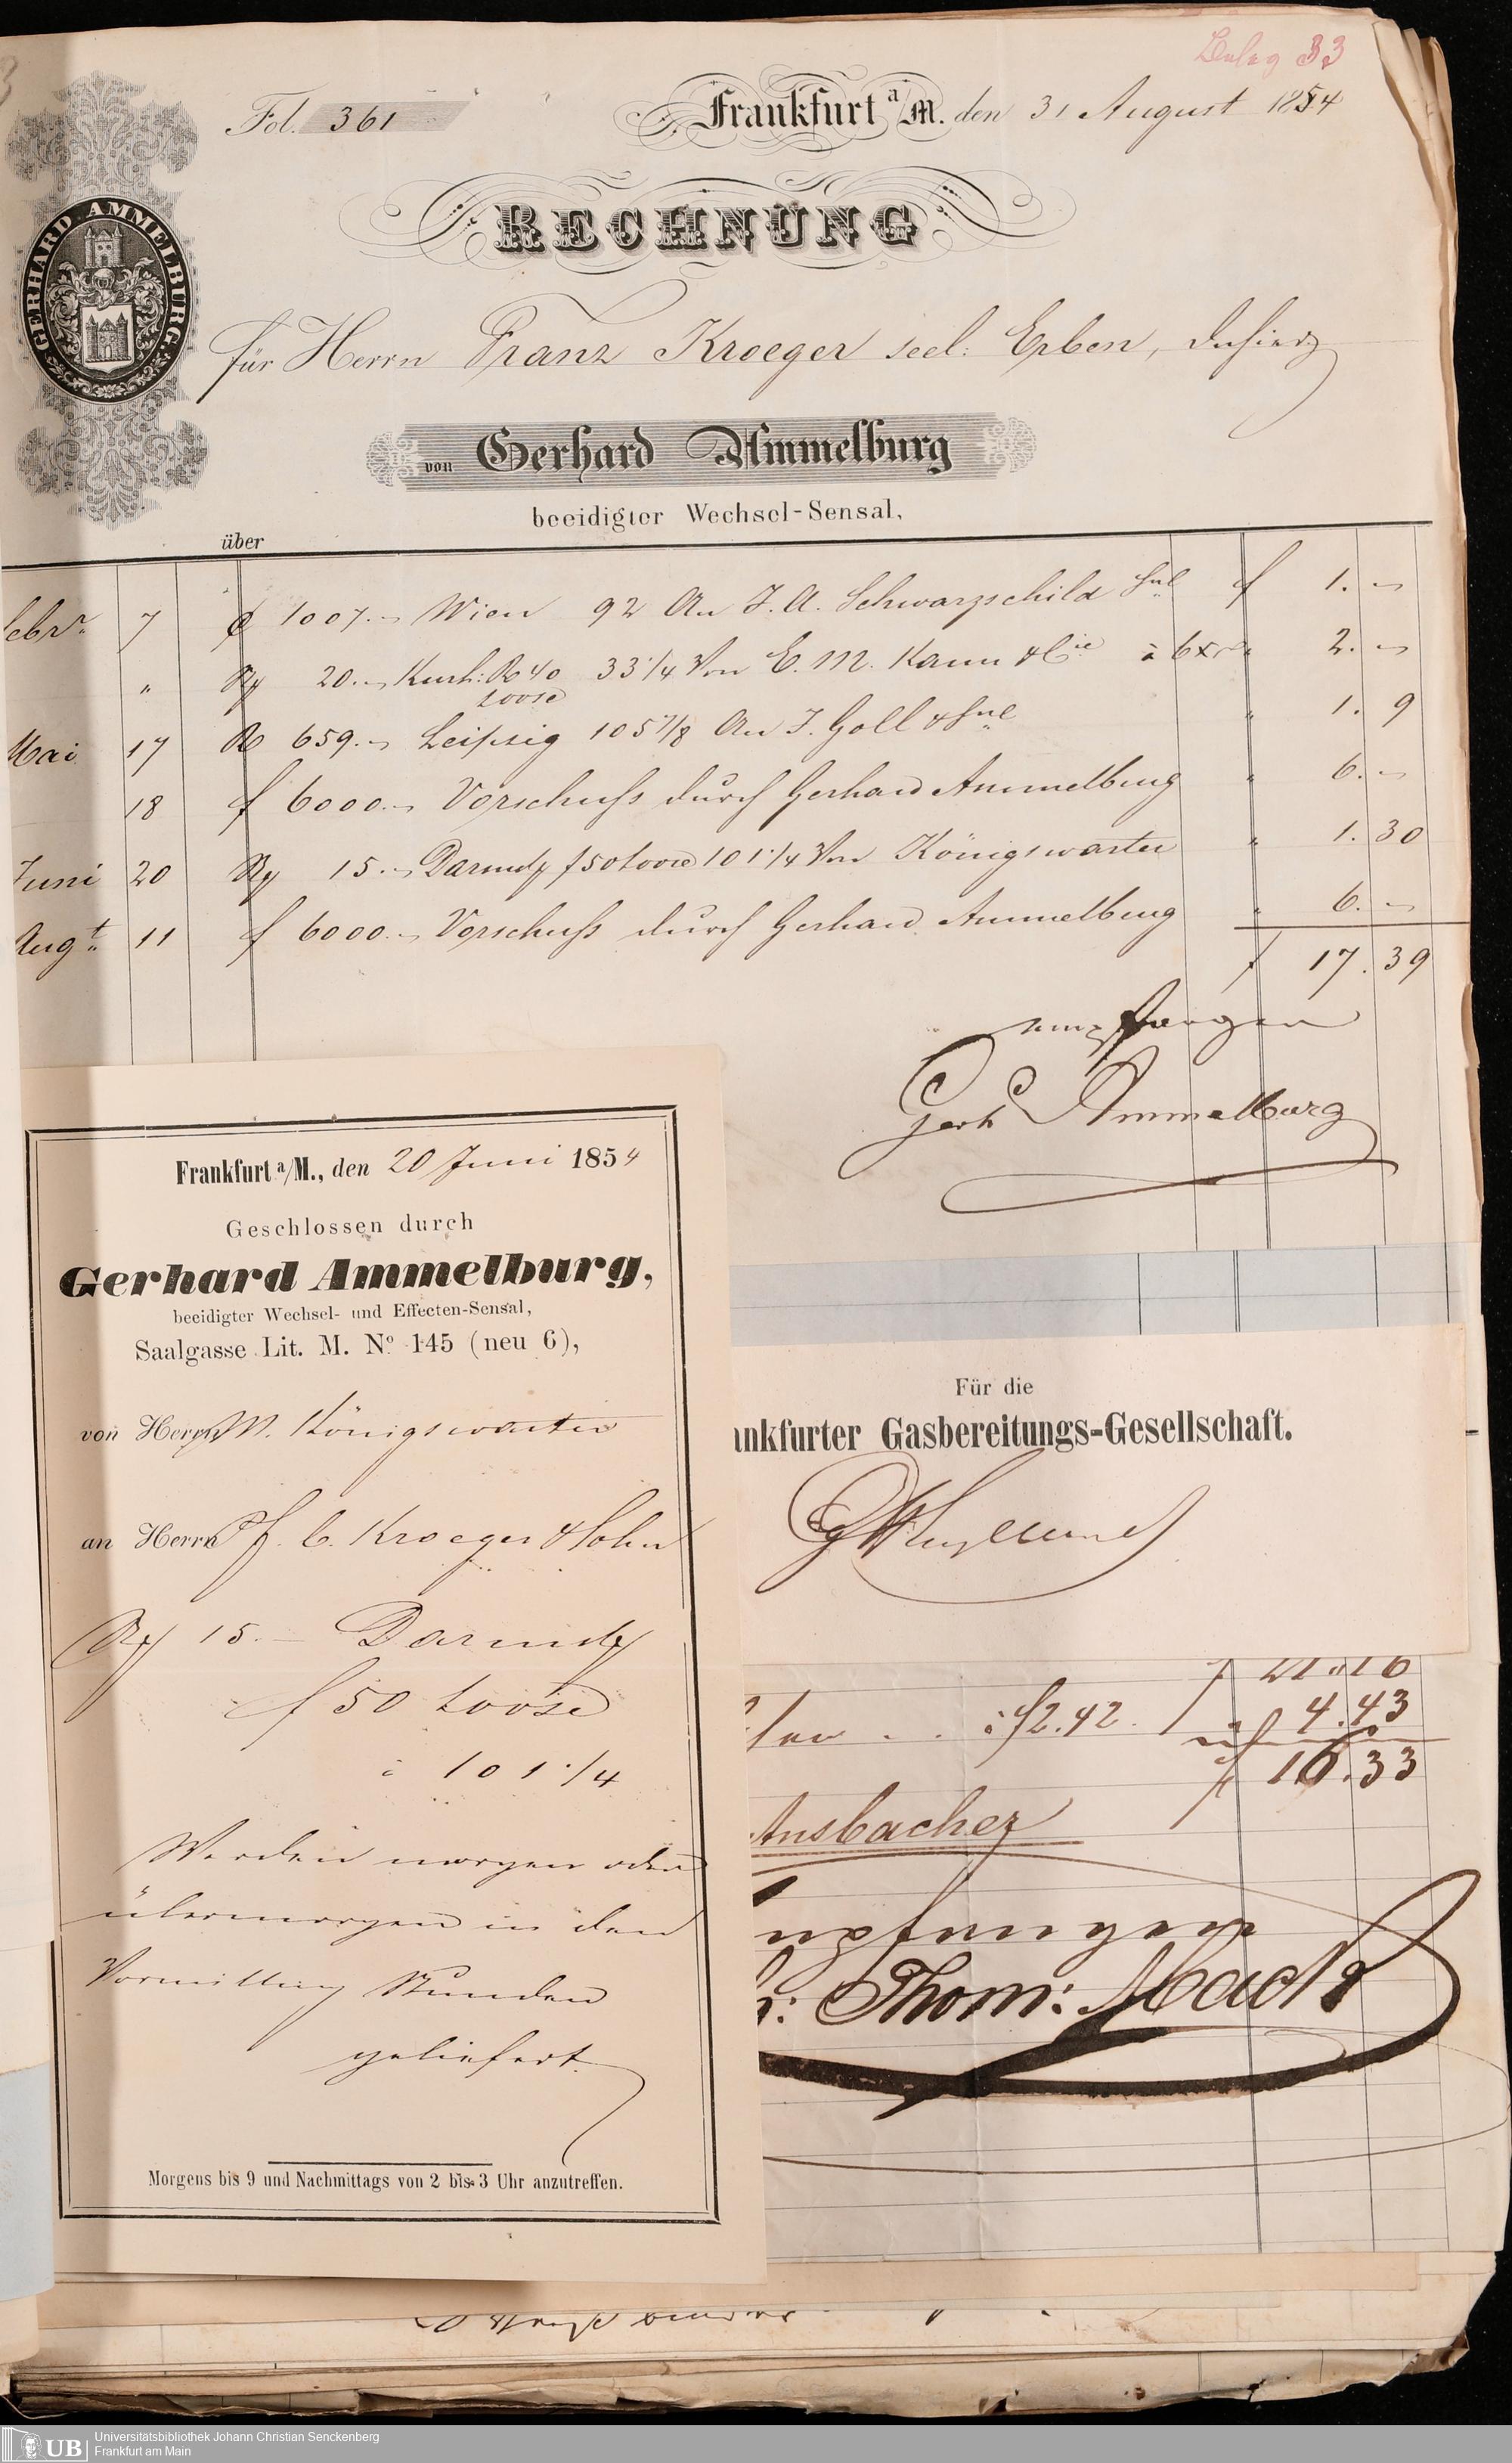 Beleg 33
Fol. 361
Frankfurt a/M. den 31 August 1854
RECHNUNG
GERHARD AMMELBURG
für Herrn Franz Kroeger seel: Erben, dahier
von Gerhard Ammelburg
beeidigter Wechsel-Sensal,
über
febr. 7 1007.- Wien 92 An J. A. Schwarzschild f 1. -
" 20.- Kurh: 40 33 1/4 Von E. M. Kann & Cie à 6 xr " 2. -
Loose
Mai 17 659.- Leipzig 105 7/8 An J. Goll & " 1. 9
18 f 6000.- Vorschuss durch Gerhard Ammelburg " 6. -
Juni 20 15.- Darmst f 50 Loose 101 1/4 Von Königswarter " 1. 30
Augt. 11 f 6000.- Vorschuss durch Gerhard Ammelburg " 6. -
f 17. 39
empfangen
Gerh Ammelburg
Frankfurt a/M., den 20 Juni 1854
Geschlossen durch
Gerhard Ammelburg,
beeidigter Wechsel- und Effecten-Sensal,
Saalgasse Lit. M. No 145 (neu 6),
von Herrn M. Königswarter
an Herrn J. C. Kroeger & Sohn
15. - Darmst
f 50 Loose
à 101 1/4
Werden morgen oder
übermorgen in den
Vormittag Stunden
geliefert.
Morgens bis 9 und Nachmittags von 2 bis 3 Uhr anzutreffen.
Für die
ankfurter Gasbereitungs-Gesellschaft.
f 21.16
à f 2.42. 4.43
f 16.33
Ansbacher
empfangen
Thom: Mack
UB
Universitätsbibliothek Johann Christian Senckenberg
Frankfurt am Main